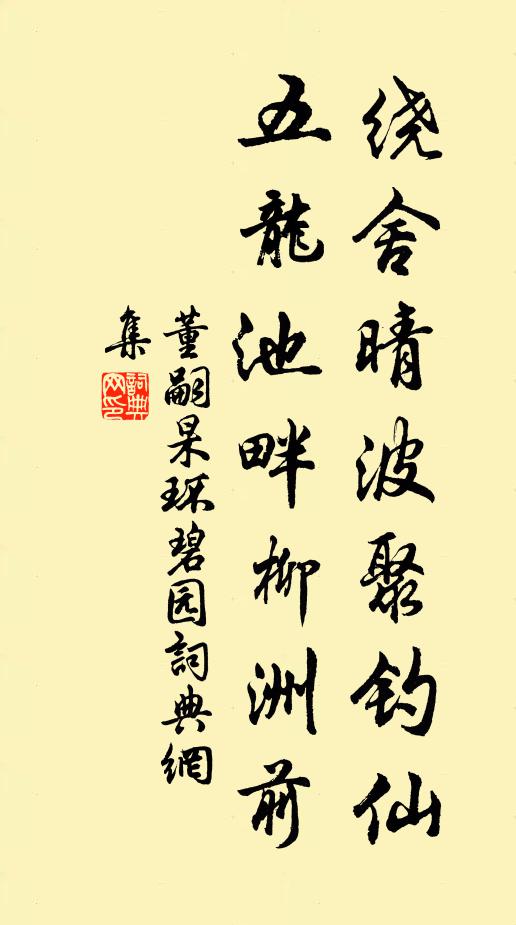 绕舍晴波聚钓仙
五龍池畔柳洲前
董嗣杲环碧园詞典網
集
詞典网印